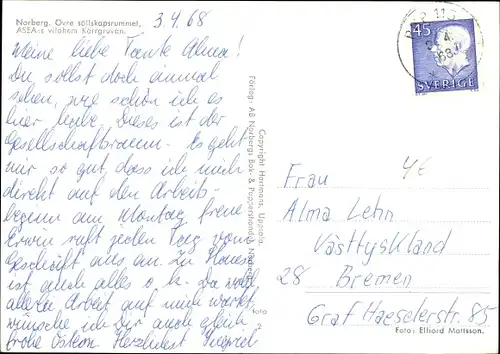 Norberg. Övre sällskapsrummet,
ASEA:s vilohem Kärrgruvan.
3.4.68
Meine liebe Tante Alma!
Du sollst doch einmal
sehen, wie schön ich es
hier habe. Dieses ist der
Gesellschaftsraum. Es geht
mir so gut, dass ich mich
direkt auf den Arbeits-
beginn am Montag freue.
Erwin ruft jeden Tag vom
Geschäft aus an. Zu Hause
ist auch alles o. k. Da viel
Arbeit auf mich wartet,
wünsche ich Dir auch gleich
frohe Ostern. Herzlichst Ingrid
Copyright Hartmans, Uppsala.
Förlag: AB Norbergs Bok- & Pappershandel
foto
45
SVERIGE
4€
Frau
Alma Lehn
Västtyskland
28 Bremen
Graf Haeselerstr. 85
Foto: Elliord Mattsson.